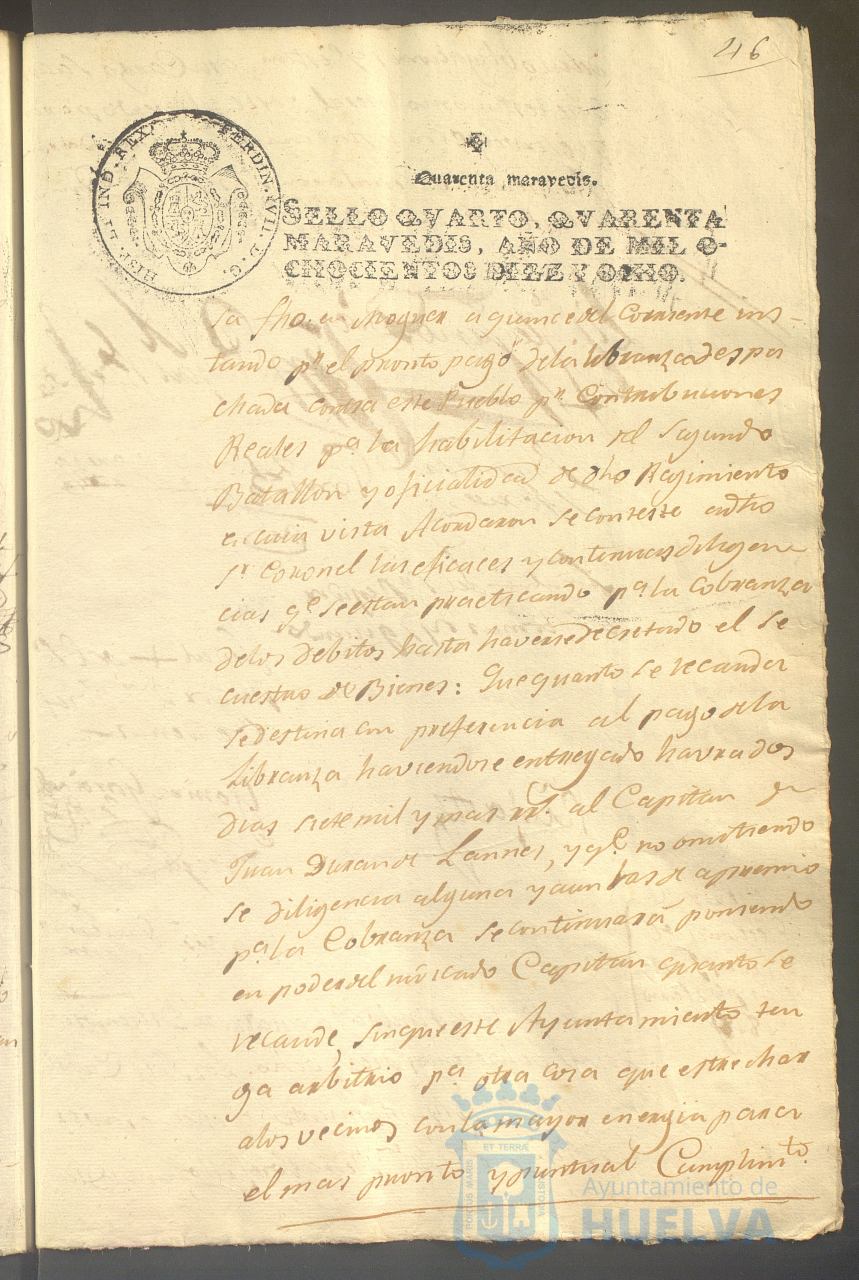 46
HISP. ET IND. REX. FERDIN. VII. D. G.
Quarenta maravedis.
SELLO QVARTO, QVARENTA
MARAVEDIS, AÑO DE MIL O-
CHOCIENTOS DIEZ Y OCHO.
sa fho. en Moguer a quince del Corriente ins-
tando pr. el pronto pago de la libranza despa
chada contra este Pueblo pr. Contribuciones
Reales pa. la habilitacion del Segundo
Batallon y oficialidad de dho Regimiento
en cuia vista Acordaron se conteste a dho
Sr. Coronel las eficaces y continuas diligen
cias qe. se estan practicando pa. la Cobranza
de los debitos hasta haverse decretado el se
cuestro de Bienes: Que quanto se recauda
se destina con preferencia al pago de la
Libranza haviendose entregado havra dos
dias siete mil y mas rrs. al Capitan Dn
Juan Duran de Lannes, y qe. no omitiendo
se diligencia alguna y aun las de apremio
pa. la Cobranza se continuará poniendo
en poder del indicado Capitan quanto se
recaude, sin que este Ayuntamiento ten
ga arbitrio pa. otra cosa que estrechar
a los vecinos con la mayor energia para
el mas pronto y puntual Cumplimto.
ET TERRÆ
PORTUS MARIS
CUSTODIA
Ayuntamiento de
HUELVA